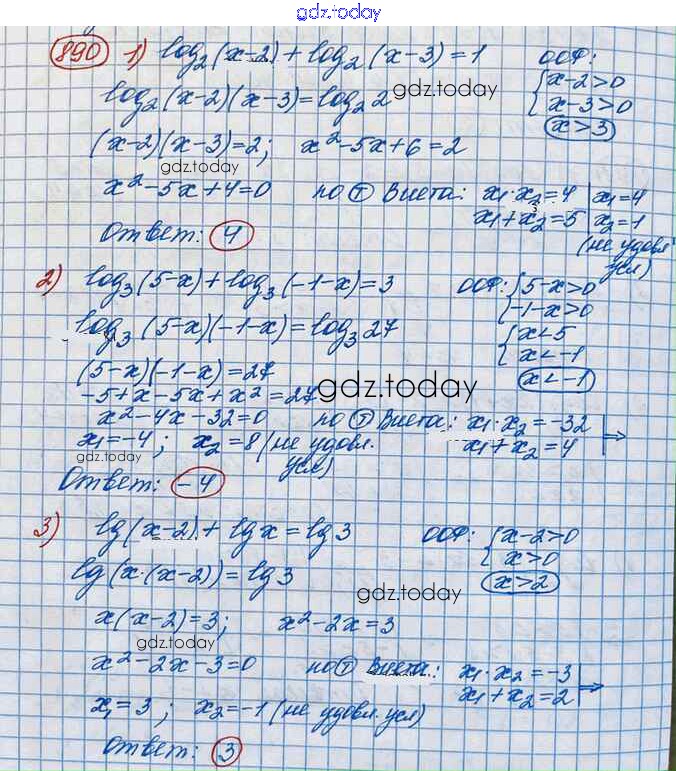 gdz.today
890 1) log₂(x-2)+log₂(x-3)=1 ООФ:
{x-2>0
log₂(x-2)(x-3)=log₂2 gdz.today {x-3>0
(x-2)(x-3)=2; x²-5x+6=2 x>3
gdz.today
x²-5x+4=0 по Т Виета: x₁·x₂=4 | x₁=4
x₁+x₂=5 | x₂=1
Ответ: 4 (не удовл
усл)
2) log₃(5-x)+log₃(-1-x)=3 ООФ: {5-x>0
{-1-x>0
log₃(5-x)(-1-x)=log₃27 {x<5
{x<-1
(5-x)(-1-x)=27 x<-1
-5+x-5x+x²=27 gdz.today
x²-4x-32=0 по Т Виета: x₁·x₂=-32 | ⇒
x₁=-4; x₂=8 (не удовл. x₁+x₂=4
gdz.today усл)
Ответ: -4
3) lg(x-2)+lgx=lg3 ООФ: {x-2>0
{x>0
lg(x·(x-2))=lg3 x>2
gdz.today
x(x-2)=3; x²-2x=3
gdz.today
x²-2x-3=0 по Т Виета: x₁·x₂=-3 | ⇒
x₁+x₂=2
x₁=3; x₂=-1 (не удовл. усл)
Ответ: 3